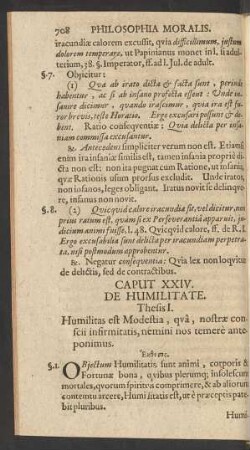 708 PHILOSOPHIA MORALIS.
iracundiæ calorem excussit, qvia difficillimum, justum
dolorem temperare, ut Papinianus monet in l. si adul-
terium, 38. §. Imperator, ff. ad l. Jul. de adult.
§.7. Objicitur:
(1) Qva ab irato dicta & facta sunt, perinde
habentur, ac si ab insano profecta essent: Unde in-
sanire dicimur, quando irascimur, quia ira est fu-
ror brevis, teste Horatio. Ergo excusari possunt & de-
bent. Ratio conseqventiæ: Quia delicta per in-
sætiam commissa excusantur.
&. Antecedens simpliciter verum non est. Etiamsi
enim ira insaniæ similis est, tamen insania propriè di-
cta non est: non ita pugnat cum Ratione, ut insania,
qvæ Rationis usum prorsus excludit. Unde iratos,
non insanos, leges obligant. Iratus novit se delinqve-
re, insanus non novit.
§.8. (2) Qvicqvid calore iracundiæ fit, vel dicitur, non
prius ratum est, quàm si ex Perseverantiâ apparuit, ju-
dicium animi fuisse. l. 48. Qvicqvid calore, ff. de R. J.
Ergo excusabilia sunt delicta per iracundiam perpetra-
ta, nisi postmodum approbentur.
&. Negatur conseqventia: Qvia lex non loqvitur
de delictis, sed de contractibus.
CAPUT XXIV.
DE HUMILITATE.
Thesis I.
Humilitas est Modestia, qvâ, nostræ con-
scii infirmitatis, nemini nos temerè ante-
ponimus.
§.1. OBjectum Humilitatis sunt animi, corporis &
Fortunæ bona, qvibus plerumq; insolescunt
mortales, qvorum spiritus comprimere, & ab aliorum
contemtu arcere, Humilitatis est, ut è præceptis pate-
bit pluribus.
Humi-